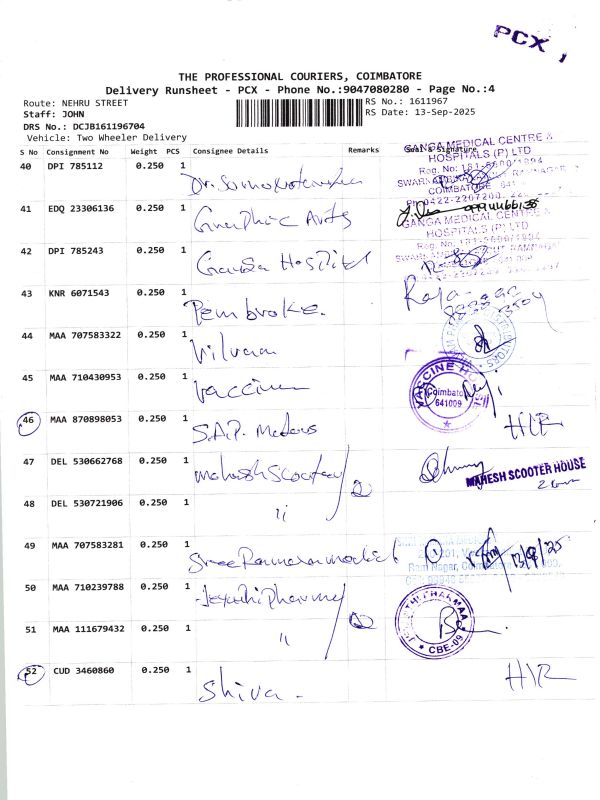 PCX
THE PROFESSIONAL COURIERS, COIMBATORE
Delivery Runsheet - PCX - Phone No.:9047080280 - Page No.:4
Route: NEHRU STREET
RS No.: 1611967
Staff: JOHN
RS Date: 13-Sep-2025
DRS No.: DCJB161196704
Vehicle: Two Wheeler Delivery
S No Consignment No Weight PCS Consignee Details Remarks Seal & Signature
GANGA MEDICAL CENTRE &
HOSPITALS (P) LTD
40 DPI 785112 0.250 1 Dr.
COIMBATORE
41 EDQ 23306136 0.250 1 Graphic Arts
GANGA MEDICAL CENTRE &
HOSPITALS (P) LTD
42 DPI 785243 0.250 1 Ganga Hospital
43 KNR 6071543 0.250 1 Pembroke. Raja
44 MAA 707583322 0.250 1 Vilvam
45 MAA 710430953 0.250 1 Vaccine
VACCINE HOUSE
Coimbatore
641009
46 MAA 870898053 0.250 1 S.A.P. Motors H/R
47 DEL 530662768 0.250 1 Mahesh Scooter 2 MAHESH SCOOTER HOUSE
48 DEL 530721906 0.250 1 "
49 MAA 707583281 0.250 1 Sree Ramana Medical 1 13/9/25
Ram Nagar, Coimbatore
50 MAA 710239788 0.250 1 Jeyanthi Pharma 2
51 MAA 111679432 0.250 1 "
CBE-09
52 CUD 3460860 0.250 1 Shiva. H/R